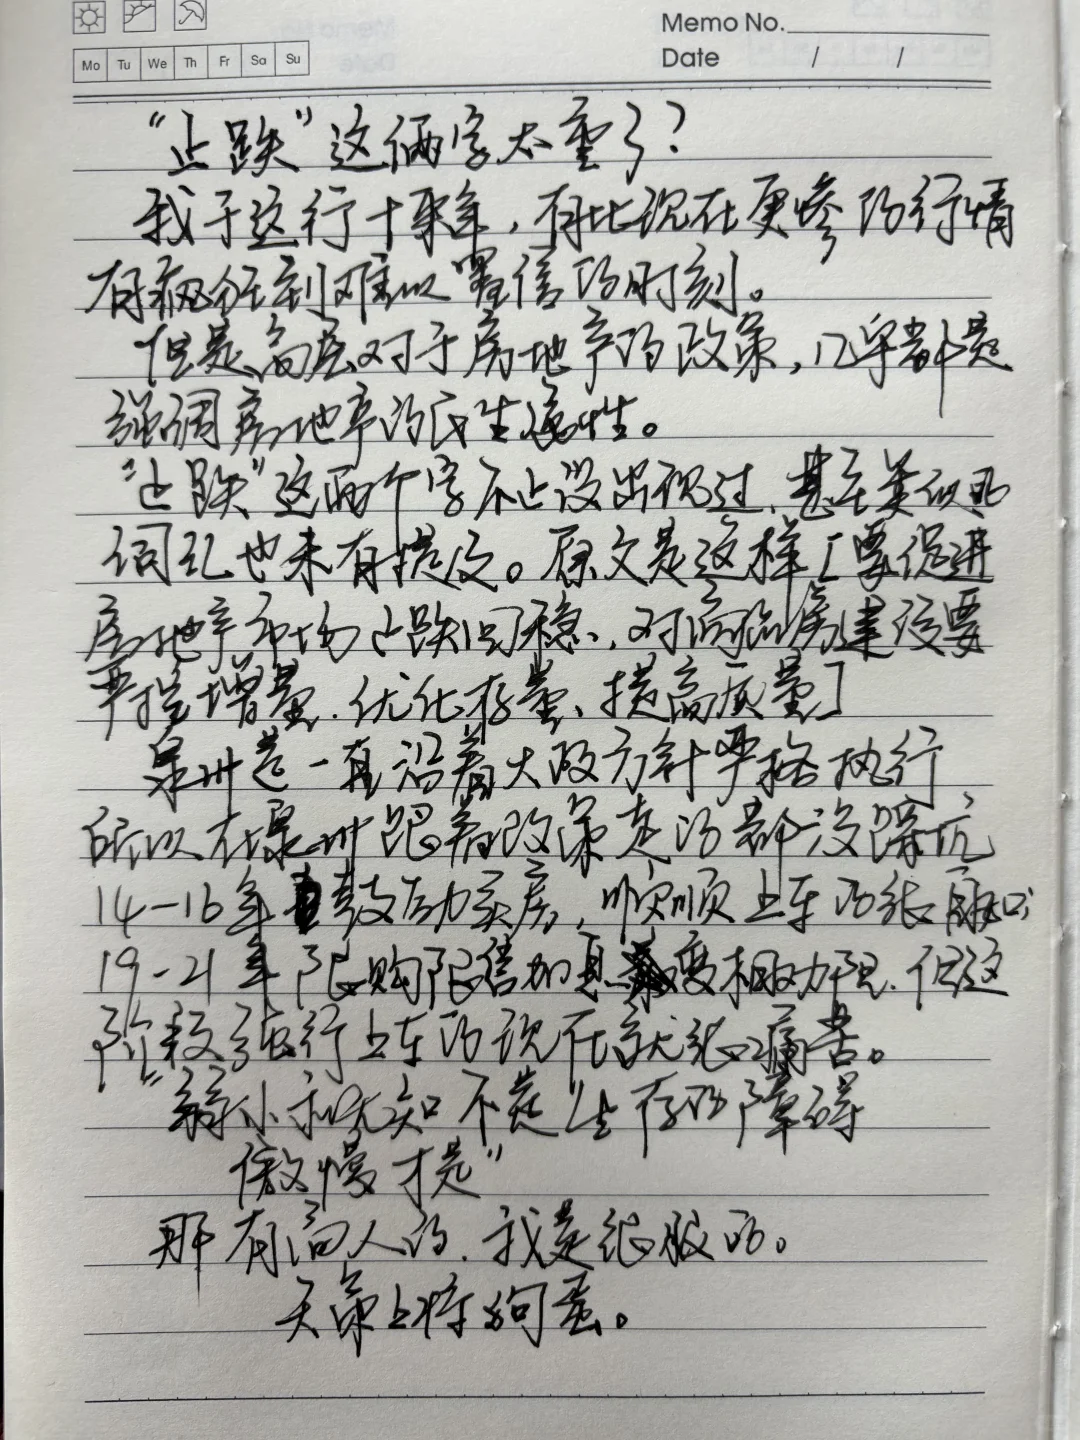 Memo No.
Mo Tu We Th Fr Sa Su
Date / /
“止跌”这俩字太重了?
我干这行十来年,有比现在更惨的行情
有疯狂到难以置信的时刻。
但是高层对于房地产的政策,几乎都是
强调房地产的民生属性。
“止跌”这两个字不止没出现过,甚至类似的
词汇也未有提及。原文是这样[要促进
房地产市场止跌回稳,对商品房建设要
严控增量、优化存量、提高质量]
泉州是一直沿着大政方针严格执行
所以在泉州跟着政策走的都没踩坑
14-16年鼓励买房,顺上车的很爽
19-21年限购限售加息相劝阻,但这
阶段强行上车的现在就很痛苦。
“弱小和无知不是生存的障碍
傲慢才是”
那有高人的,我是很服的。
天策上将狗蛋。